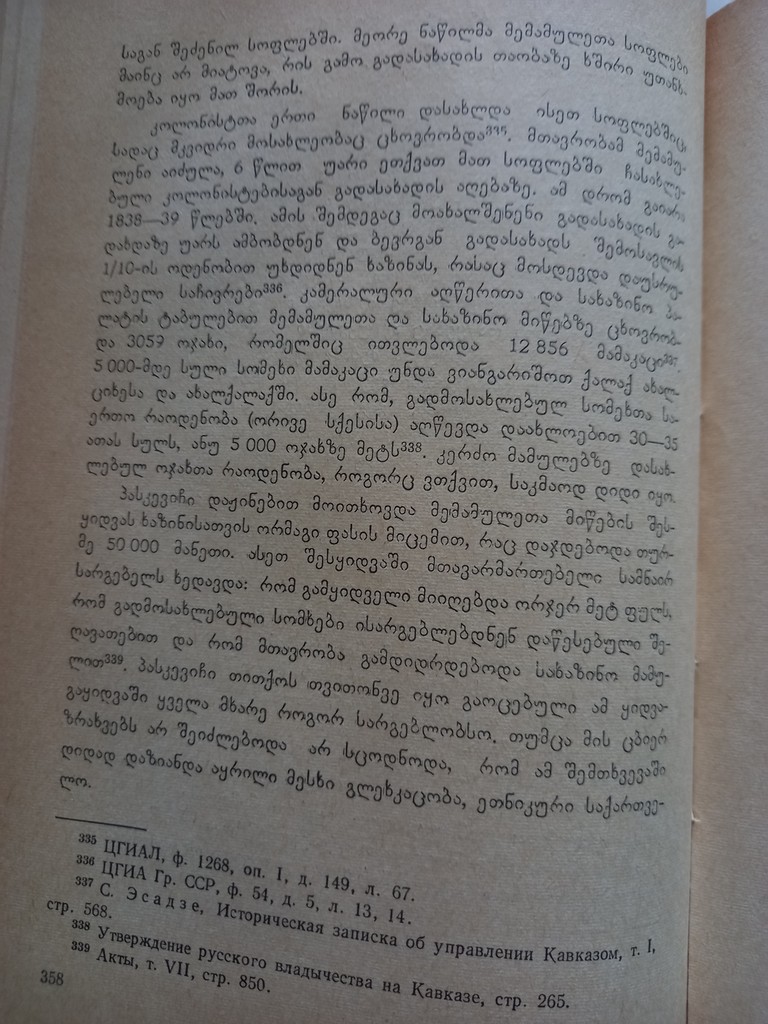 საგან შეძენილ სოფლებში. მეორე ნაწილმა მემამულეთა სოფლები
მაინც არ მიატოვა, რის გამო გადასახადის თაობაზე ხშირი უთანხ-
მოება იყო მათ შორის.
კოლონისტთა ერთი ნაწილი დასახლდა ისეთ სოფლებშიც,
სადაც მკვიდრი მოსახლეობაც ცხოვრობდა³³⁵. მთავრობამ მემამუ-
ლენი აიძულა, 6 წლით უარი ეთქვათ მათ სოფლებში ჩასახლე-
ბული კოლონისტებისაგან გადასახადის აღებაზე. ამ დრომ გაიარა
1838—39 წლებში. ამის შემდეგაც მოახალშენენი გადასახადის გა-
დახდაზე უარს ამბობდნენ და ბევრგან გადასახადს შემოსავლის
1/10-ის ოდენობით უხდიდნენ ხაზინას, რასაც მოსდევდა დაუსრუ-
ლებელი საჩივრები³³⁶. კამერალური აღწერითა და სახაზინო პა-
ლატის ტაბულებით მემამულეთა და სახაზინო მიწებზე ცხოვრობ-
და 3059 ოჯახი, რომელშიც ითვლებოდა 12 856 მამაკაცი³³⁷.
5 000-მდე სული სომეხი მამაკაცი უნდა ვიანგარიშოთ ქალაქ ახალ-
ციხესა და ახალქალაქში. ასე რომ, გადმოსახლებულ სომეხთა სა-
ერთო რაოდენობა (ორივე სქესისა) აღწევდა დაახლოებით 30—35
ათას სულს, ანუ 5 000 ოჯახზე მეტს³³⁸. კერძო მამულებზე დასახ-
ლებულ ოჯახთა რაოდენობა, როგორც ვთქვით, საკმაოდ დიდი იყო.
პასკევიჩი დაჟინებით მოითხოვდა მემამულეთა მიწების შეს-
ყიდვას ხაზინისათვის ორმაგი ფასის მიცემით, რაც დაჯდებოდა თურ-
მე 50 000 მანეთი. ასეთ შესყიდვაში მთავარმართებელი სამნაირ
სარგებელს ხედავდა: რომ გამყიდველი მიიღებდა ორჯერ მეტ ფულს,
რომ გადმოსახლებული სომხები ისარგებლებდნენ დაწესებული შე-
ღავათებით და რომ მთავრობა გამდიდრდებოდა სახაზინო მამუ-
ლით³³⁹. პასკევიჩი თითქოს თვითონვე იყო გაოცებული ამ ყიდვა-
გაყიდვაში ყველა მხარე როგორ სარგებლობსო. თუმცა მის ცბიერ
ზრახვებს არ შეიძლებოდა არ სცოდნოდა, რომ ამ შემთხვევაში
დიდად დაზიანდა აყრილი მესხი გლეხკაცობა, ეთნიკური საქართვე-
ლო.
³³⁵ ЦГИАЛ, ф. 1268, оп. I, д. 149, л. 67.
³³⁶ ЦГИА Гр. ССР, ф. 54, д. 5, л. 13, 14.
³³⁷ С. Эсадзе, Историческая записка об управлении Кавказом, т. I,
стр. 568.
³³⁸ Утверждение русского владычества на Кавказе, стр. 265.
³³⁹ Акты, т. VII, стр. 850.
358